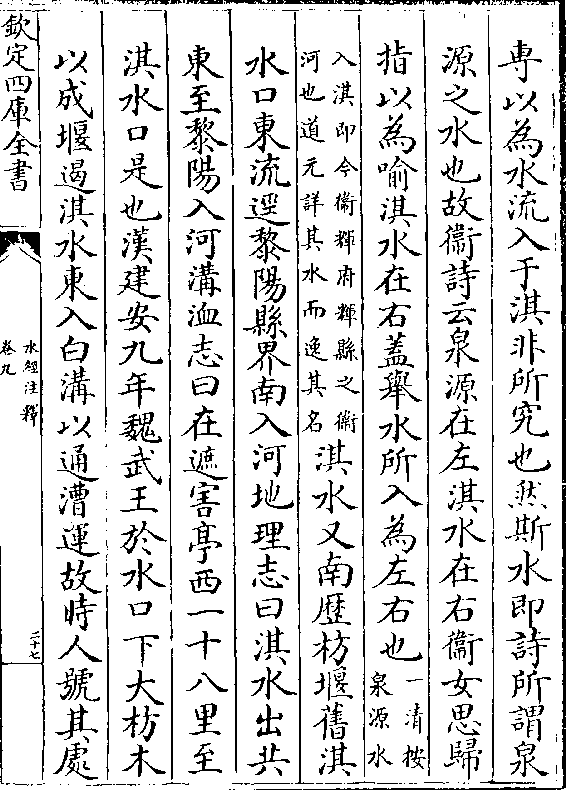 專以為水流入于淇非所究也然斯水即詩所謂泉
源之水也故衞詩云泉源在左淇水在右衞女思歸
指以為喻淇水在右蓋舉水所入為左右也一清按泉源水
入淇即今衞輝府輝縣之衞河也道元詳其水而逸其名淇水又南歷枋堰舊淇
水口東流逕黎陽縣界南入河地理志曰淇水出共
東至黎陽入河溝洫志曰在遮害亭西一十八里至
淇水口是也漢建安九年魏武王於水口下大枋木
以成堰遏淇水東入白溝以通漕運故時人號其處
欽定四庫全書
水經注釋
卷九
二十七